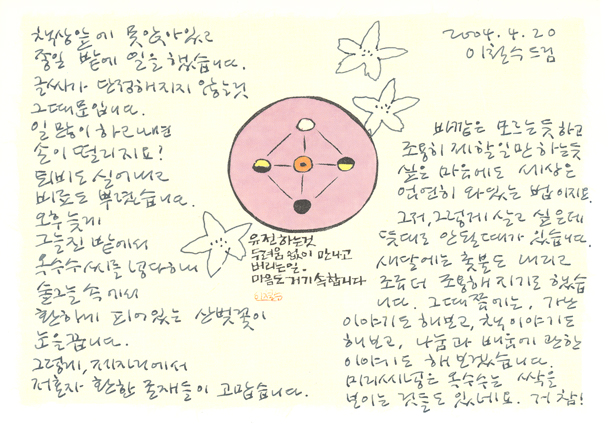 책상앞에 못앉아있고
종일 밭에 일을 했습니다.
글씨가 단정해지지 않는것
그 때문입니다.
일 많이 하고나면
손이 떨리지요?
퇴비도 실어내고
비료도 뿌렸습니다.
오후 늦게
그늘진 밭에서
옥수수씨를 넣다하니
솔그늘 속에서
환하게 피어있는 산벚꽃이
눈을끕니다.
그렇게, 제자리에서
저혼자 환한 존재들이 고맙습니다.
유전하는것
두려움 없이 만나고
버리는 일.
마음도 거기 속합니다
2004. 4. 20
이철수 드림
바깥은 모르는듯 하고
조용히 제할일만 하는듯
싶은 마음에도 세상은
엄연히 와있는 법이지요.
그저, 그렇게 살고 싶은데
뜻대로 안될때가 있습니다.
새달에는 촛불도 내리고
조금 더 조용해지기로 했습
니다. 그때쯤에는, 가난
이야기도 해보고, 책이야기도
해보고, 나눔과 배움에 관한
이야기도 해 보겠습니다.
미리세넣은 옥수수는 싹을
보이는 것들도 있네요. 거 참!